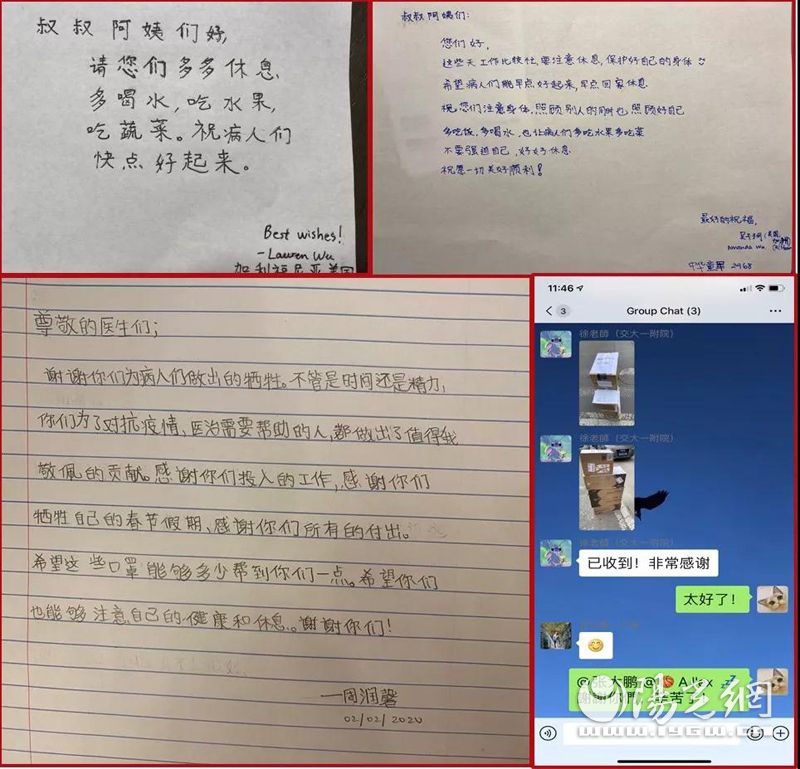 叔叔阿姨们好,
请您们多多休息,
多喝水,吃水果,
吃蔬菜。祝病人们
快点好起来。
Best wishes!
-Lauren Wu
加利福尼亚美国
叔叔阿姨们:
您们好,
这些天工作比较忙,要注意休息,保护好自己的身体
希望病人们能早点好起来,早点回家休息
祝您们注意身体,照顾别人的同时也照顾好自己
多吃饭,多喝水,也让病人们多吃水果多吃菜
不要强迫自己,好好休息
祝愿一切美好顺利!
最好的祝福,
Amanda Wu
中华童军 2968
尊敬的医生们;
谢谢你们为病人们做出的牺牲。不管是时间还是精力,
你们为了对抗疫情、医治需要帮助的人,都做出了值得我
敬佩的贡献。感谢你们投入的工作,感谢你们
牺牲自己的春节假期、感谢你们所有的付出。
希望这些口罩能够多少帮到你们一点。希望你们
也能够注意自己的健康和休息。谢谢你们!
—周润馨
02/02/2020
11:46
3
Group Chat (3)
徐老師(交大一附院)
徐老師(交大一附院)
徐老師(交大一附院)
已收到！非常感谢
太好了！
@张大鹏 @ A llex
谢谢你們 辛苦了
汤艺網
www.iygw.cn